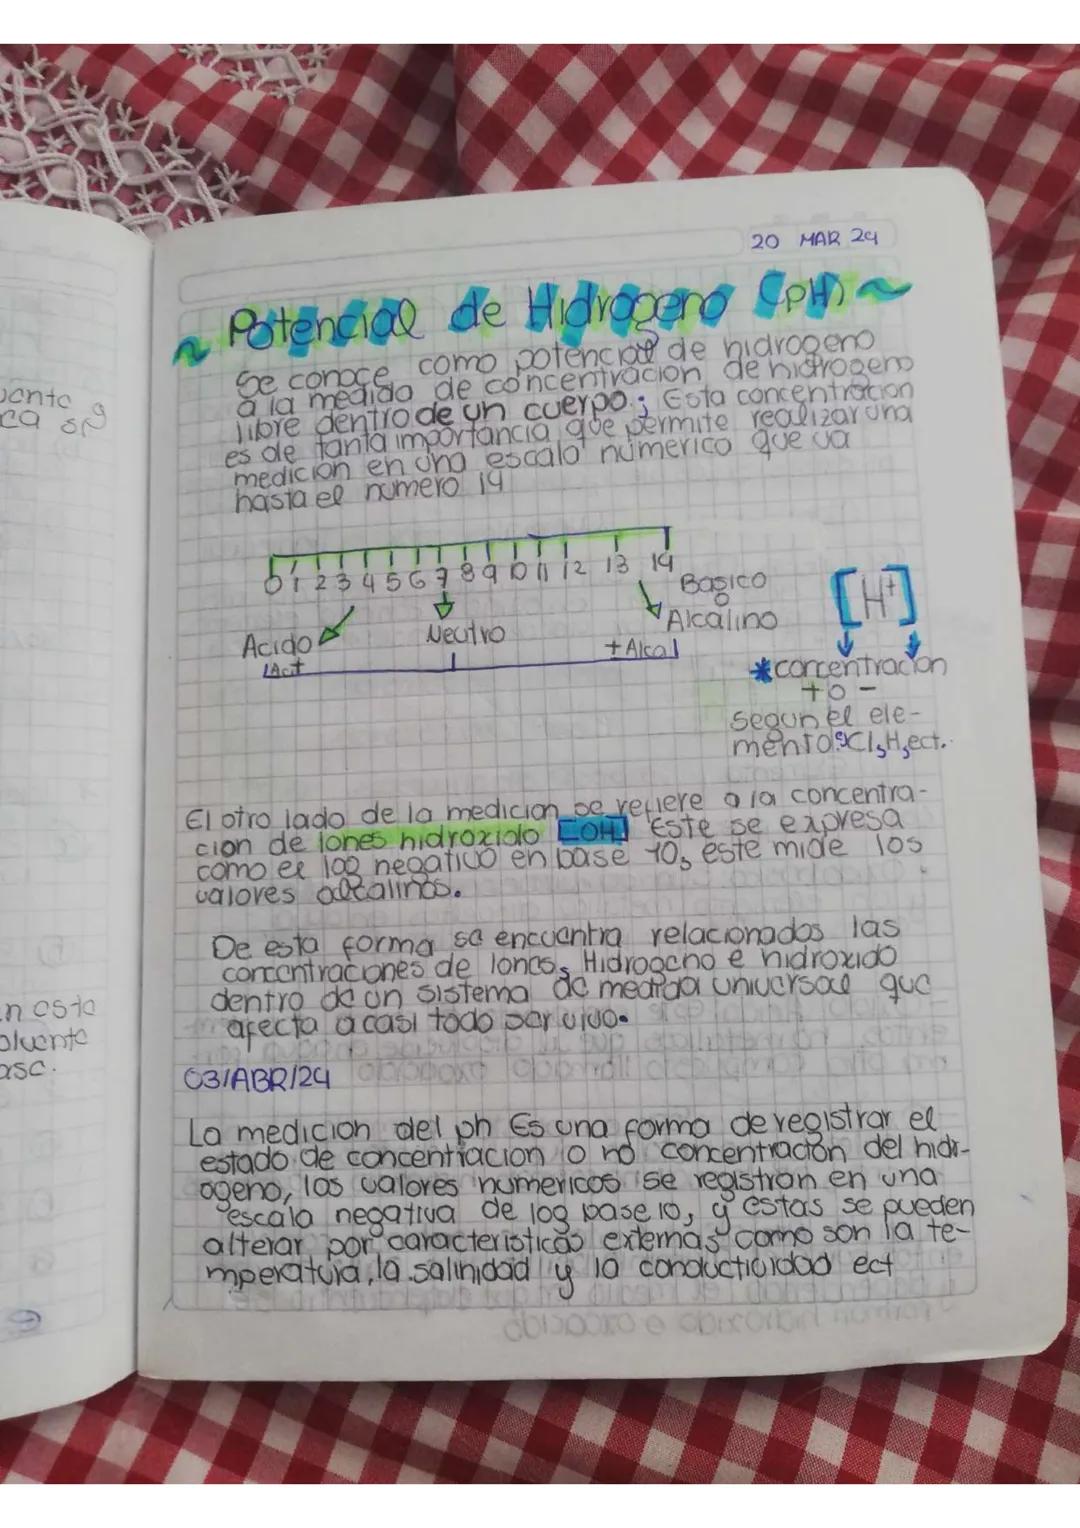 20 MAR 24
~ Potencial de Hidrogeno (pH) ~
Se conoce como potencial de hidrogeno
a la medida de concentracion de hidrogeno
libre dentro de un cuerpo; Esta concentracion
es de tanta importancia que permite realizar una
medicion en una escala númerico que va
hasta el numero 14
0 1 2 3 4 5 6 7 8 9 10 11 12 13 14
Basico
o
Alcalino
Acido
Neutro
+Alcal
[H+]
*concentracion
+ o -
segun el ele-
mento Cl, H, ect.
El otro lado de la medicion se refiere a la concentra-
cion de Iones hidroxido [OH] Este se expresa
como el log negativo en base 10, este mide los
valores alcalinos.
De esta forma se encuentra relacionados las
concentraciones de Iones, Hidrogeno e hidroxido
dentro de un sistema de medida universal que
afecta a casi todo ser vivo.
03/ABR/24
La medicion del ph Es una forma de registrar el
estado de concentracion o no concentración del hidr-
ogeno, los valores numericos se registran en una
escala negativa de log base 10, y estas se pueden
alterar por caracteristicas externas como son la te-
mperatura, la salinidad y la conductividad ect
uente
ca
n esta
oluente
asc.